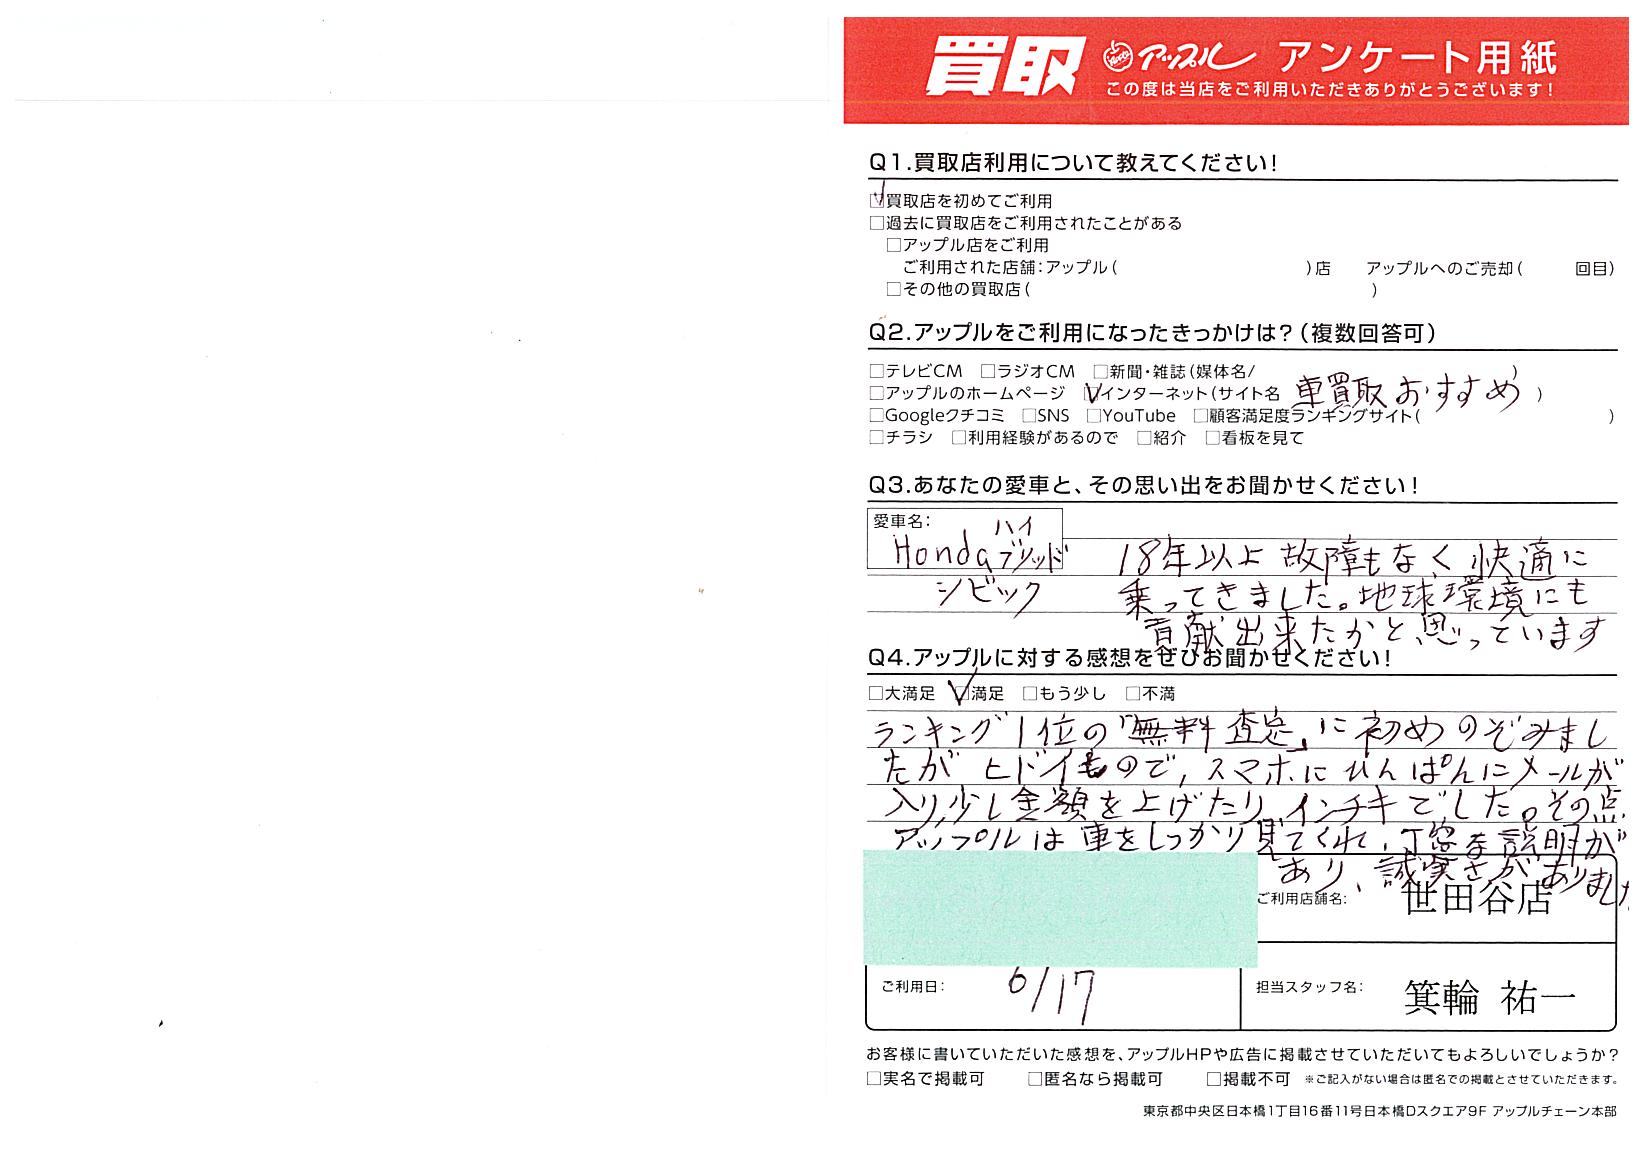 買取 アップル アンケート用紙
この度は当店をご利用いただきありがとうございます!
Q1.買取店利用について教えてください!
☑買取店を初めてご利用
□過去に買取店をご利用されたことがある
□アップル店をご利用
ご利用された店舗:アップル( )店 アップルへのご売却( 回目)
□その他の買取店( )
Q2.アップルをご利用になったきっかけは?(複数回答可)
□テレビCM □ラジオCM □新聞・雑誌(媒体名/ )
□アップルのホームページ ☑インターネット(サイト名 車買取おすすめ )
□Googleクチコミ □SNS □YouTube □顧客満足度ランキングサイト( )
□チラシ □利用経験があるので □紹介 □看板を見て
Q3.あなたの愛車と、その思い出をお聞かせください!
愛車名: ハイ
Honda ブリッド 18年以上故障もなく快適に
シビック 乗ってきました。地球環境にも
貢献出来たかと思っています
Q4.アップルに対する感想をぜひお聞かせください!
□大満足 ☑満足 □もう少し □不満
ランキング1位の「無料査定」に初めのぞみまし
たがヒドイもので,スマホにひんぱんにメールが
入り,少し金額を上げたり,インチキでした。その点
アップルは車をしっかり見てくれ,丁寧な説明が
あり、誠実さがありました
ご利用店舗名: 世田谷店
ご利用日: 6/17 担当スタッフ名: 箕輪 祐一
お客様に書いていただいた感想を、アップルHPや広告に掲載させていただいてもよろしいでしょうか?
□実名で掲載可 □匿名なら掲載可 □掲載不可 ※ご記入がない場合は匿名での掲載とさせていただきます。
東京都中央区日本橋1丁目16番11号日本橋Dスクエア9F アップルチェーン本部